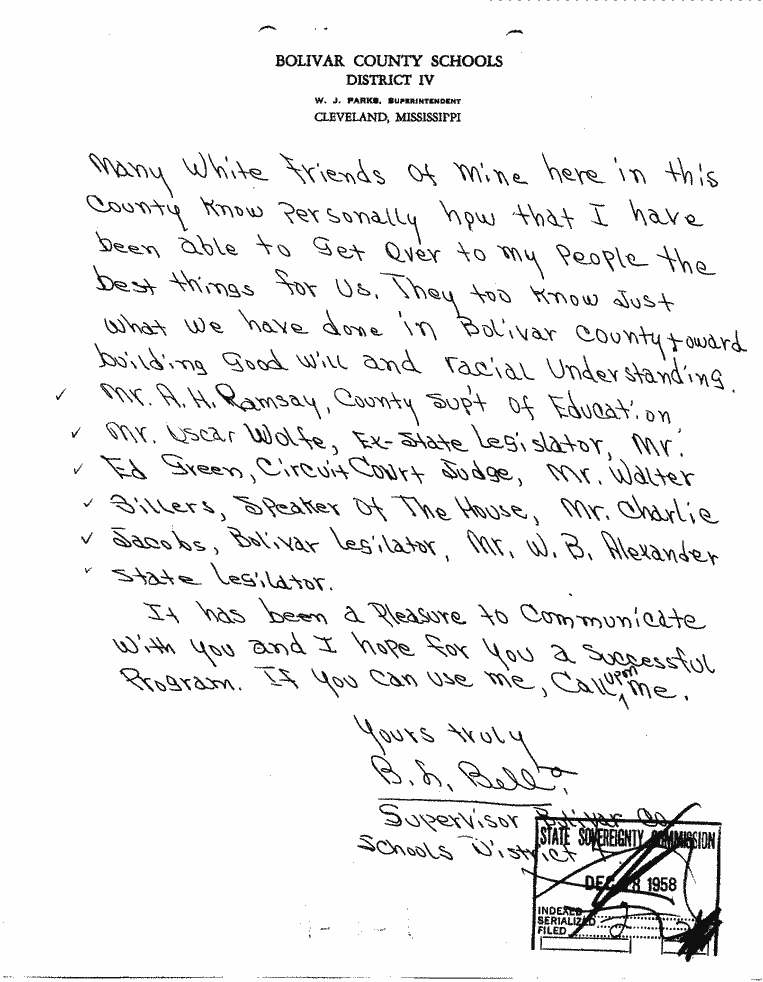 BOLIVAR COUNTY SCHOOLS
DISTRICT IV
W. J. PARKS, SUPERINTENDENT
CLEVELAND, MISSISSIPPI
Many White Friends of mine here in this
County Know Personally hpw that I have
been able to Get Over to my People the
best things for Us. They too Know Just
what we have done in Bolivar County toward
building Good Will and racial Understanding.
✓ Mr. A. H. Ramsay, County Sup't of Education,
✓ Mr. Oscar Wolfe, Ex-State Legislator, Mr.
✓ Ed Green, Circuit Court Judge, Mr. Walter
✓ Sillers, Speaker Of The House, Mr. Charlie
✓ Jacobs, Bolivar Legilator, Mr. W. B. Alexander
✓ State Legildtor.
It has been a Pleasure to Communicate
With you and I hope for you a Successful
Program. If you can use me, Call upon me.
Yours truly
B. L. Bell,
Supervisor Bolivar Co
Schools District
STATE SOVEREIGNTY COMMISSION
DEC 8 1958
INDEXED
SERIALIZED
FILED